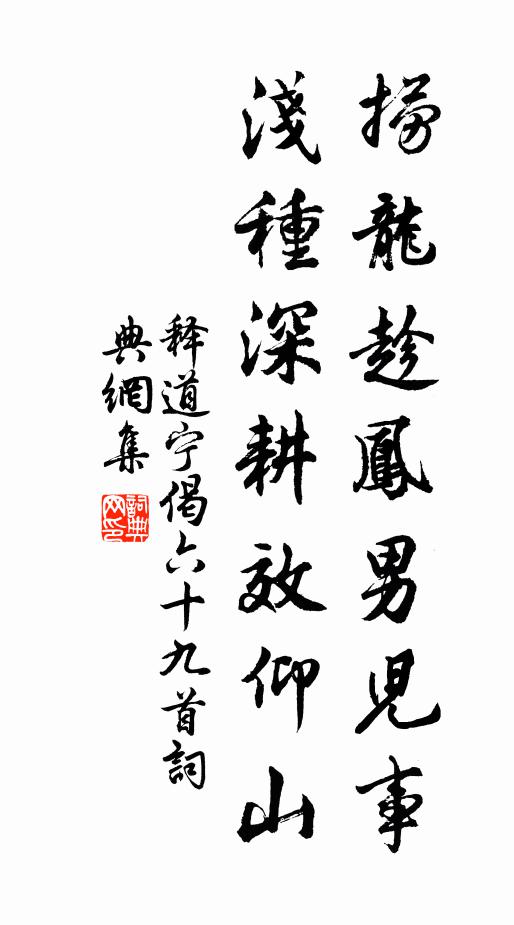 撈龍趁鳳男児事
淺種深耕效仰山
释道宁偈六十九首詞
典網集
詞典网印